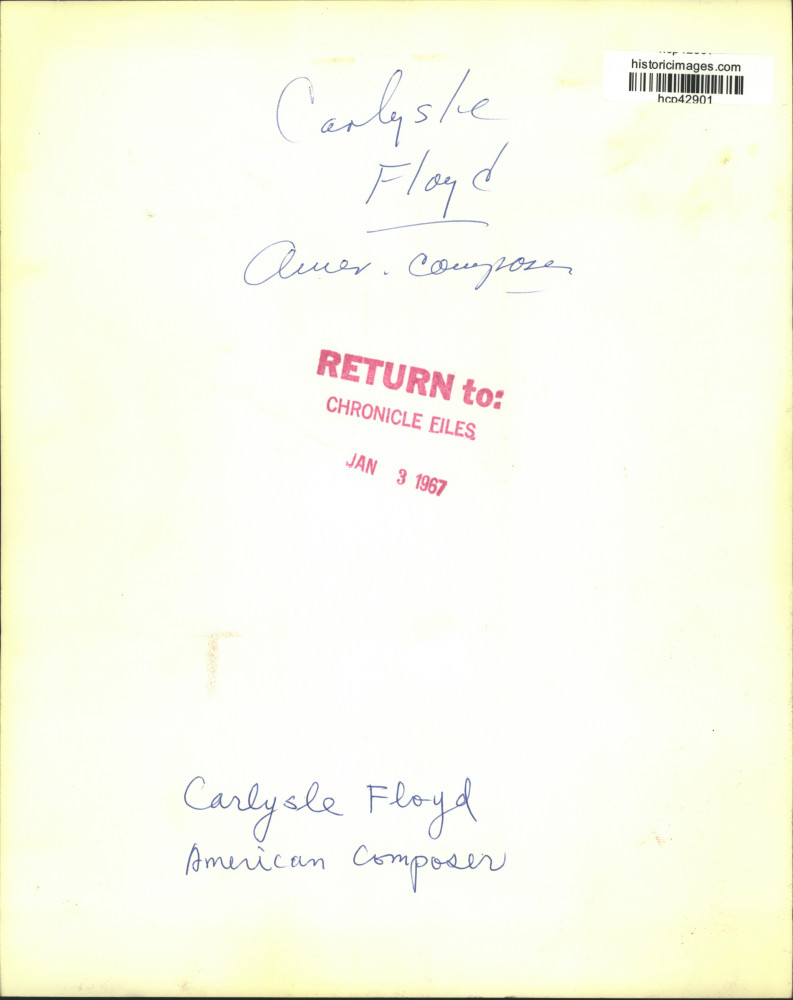 historicimages.com
hcp42901
Carlysle
Floyd
Amer. Composer
RETURN to:
CHRONICLE FILES
JAN 3 1967
Carlysle Floyd
American Composer